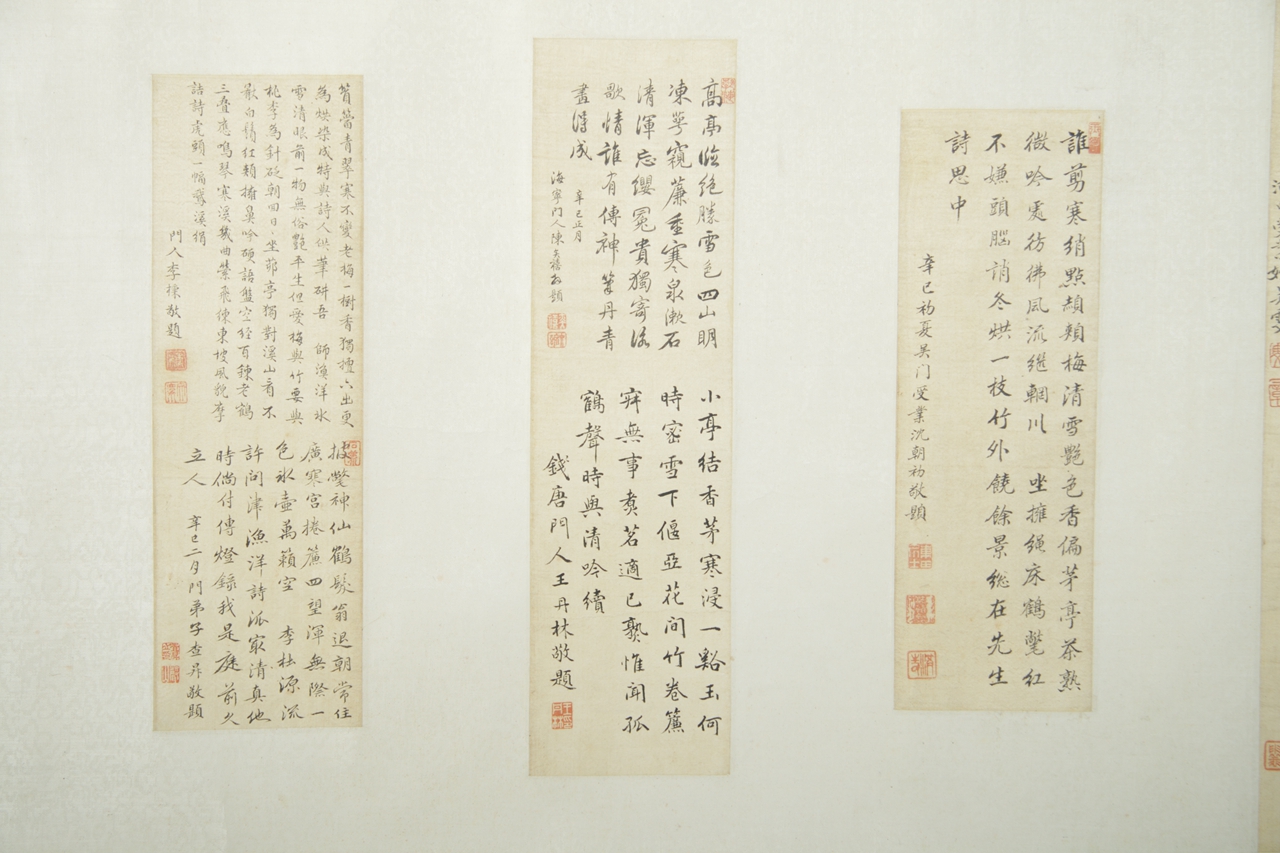 誰剪寒綃點頳頰梅清雪艷色香偏茅亭茶熟
微吟處彷彿風流繼輞川 坐擁繩床鶴氅紅
不嫌頭腦誚冬烘一枝竹外饒餘景總在先生
詩思中
辛巳初夏吳门受業沈朝初敬題
高亭臨絕勝雪色四山明
凍萼窺簾垂寒泉漱石
清渾忘纓冕貴獨寄
歌情誰有傳神筆丹青
畫得成
辛巳正月
海寧门人陳奕禧敬題
小亭結香茅寒浸一谿玉何
時密雪下偃亞花间竹卷簾
寂無事煮茗適已熟惟聞孤
鶴聲時與清吟續
錢唐門人王丹林敬題
篔簹青翠寒不變老梅一樹香獨擅六出更
為烘染成特與詩人供筆研吾 師漁洋冰
雪清眼前一物無俗艷平生但愛梅與竹要與
桃李為針砭朝回日日坐茆亭獨對溪山看不
厭白鬚紅頰擁鼻吟硬語盤空经百鍊老鶴
三疊應鳴琴寒溪幾曲縈飛練東坡風貌李
詰詩虎頭一幅鵞溪絹
門人李棟敬題
披氅神仙鶴髮翁退朝常住
廣寒宮捲簾四望渾無際一
色冰壺萬籟空 李杜源流
許问津漁洋詩派最清真他
時倘付傳燈錄我是庭前久
立人
辛巳二月門弟子查昇敬題